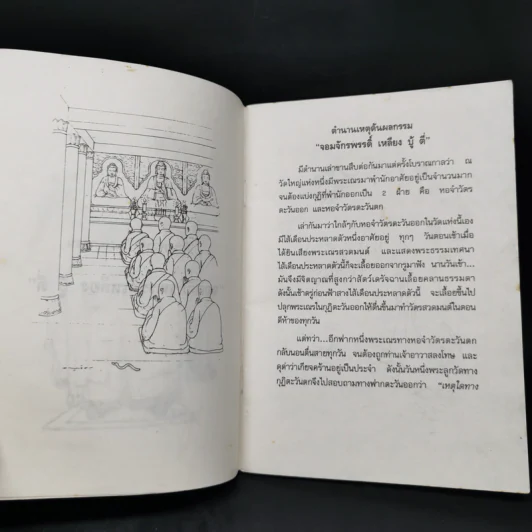 ตำนานเหตุต้นผลกรรม
"จอมจักรพรรดิ์ เหลียง บู้ ตี่"
มีตำนานเล่าขานสืบต่อกันมาแต่ครั้งโบราณกาลว่า ณ
วัดใหญ่แห่งหนึ่งมีพระเณรมาพำนักอาศัยอยู่เป็นจำนวนมาก
จนต้องแบ่งกุฏิที่พำนักออกเป็น ๒ ฝ่าย คือ หอจำวัตร
ตะวันออก และหอจำวัตรตะวันตก
เล่ากันมาว่าใกล้ๆกับหอจำวัตรตะวันออกในวัดแห่งนี้เอง
มีไส้เดือนประหลาดตัวหนึ่งอาศัยอยู่ ทุกๆ วันตอนเช้าเมื่อ
ได้ยินเสียงพระเณรสวดมนต์ และแสดงพระธรรมเทศนา
ไส้เดือนประหลาดตัวนี้ก็จะเลื้อยออกจากรูมาฟัง นานวันเข้า...
มันจึงมีจิตญาณที่สูงกว่าสัตว์เดรัจฉานเลื้อยคลานธรรมดา
ดังนั้นเช้าตรู่ก่อนฟ้าสางไส้เดือนประหลาดตัวนี้ จะเลื้อยขึ้นไป
ปลุกพระเณรในกุฏิตะวันออกให้ตื่นขึ้นมาทำวัตรสวดมนต์ในตอน
ตีห้าของทุกวัน
แต่ทว่า...อีกฟากหนึ่งพระเณรทางหอจำวัตรตะวันตก
กลับนอนตื่นสายทุกวัน จนต้องถูกท่านเจ้าอาวาสลงโทษ และ
ดุด่าว่าเกียจคร้านอยู่เป็นประจำ ดังนั้นวันหนึ่งพระลูกวัดทาง
กุฏิตะวันตกจึงไปสอบถามทางฟากตะวันออกว่า "เหตุใดทาง